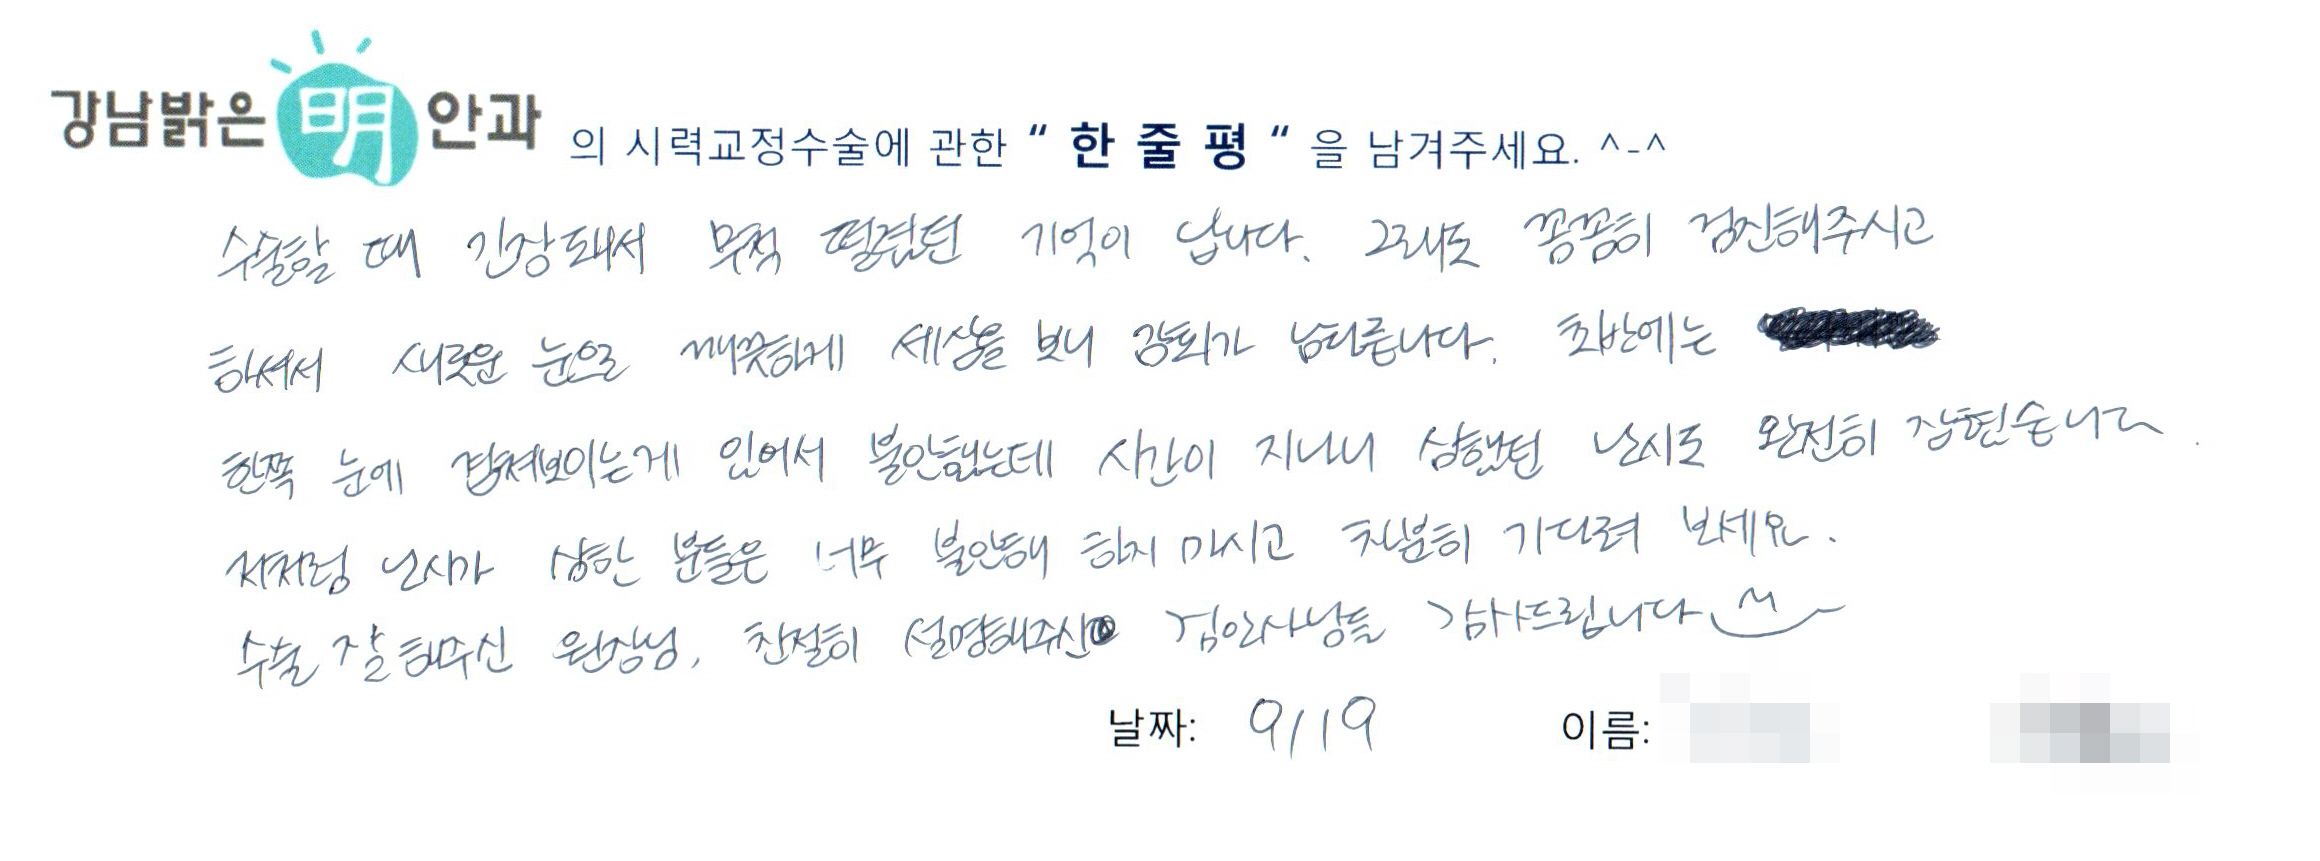 강남밝은明안과 의 시력교정수술에 관한 “ 한 줄 평 “ 을 남겨주세요. ^-^
수술할 때 긴장돼서 무척 떨렸던 기억이 납니다. 그래도 꼼꼼히 검진해주시고
하셔서 새로운 눈으로 깨끗하게 세상을 보니 감회가 남다릅니다. 초반에는
한쪽 눈에 겹쳐보이는게 있어서 불안했는데 시간이 지나니 심했던 난시도 완전히 잡혔습니다.
저처럼 난시가 심한 분들은 너무 불안해 하지 마시고 차분히 기다려 보세요.
수술 잘 해주신 원장님, 친절히 설명해주신 검안사님들 감사드립니다
날짜: 9/19 이름: